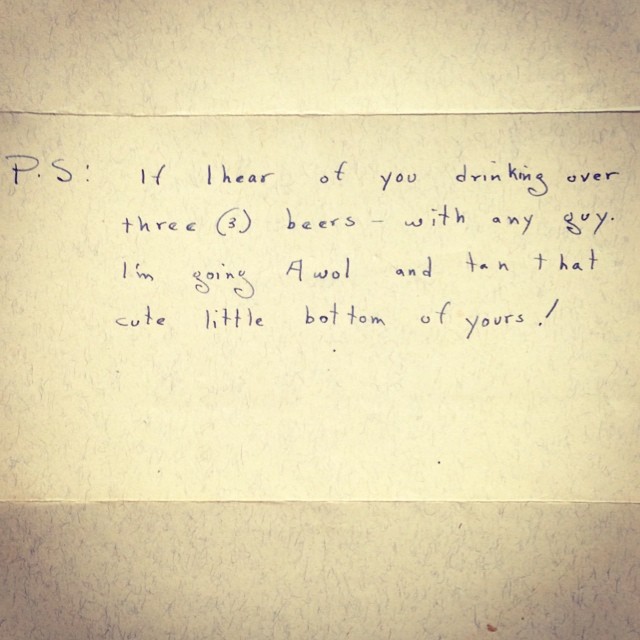 P.S: If I hear of you drinking over
three (3) beers - with any guy.
I'm going Awol and tan that
cute little bottom of yours!